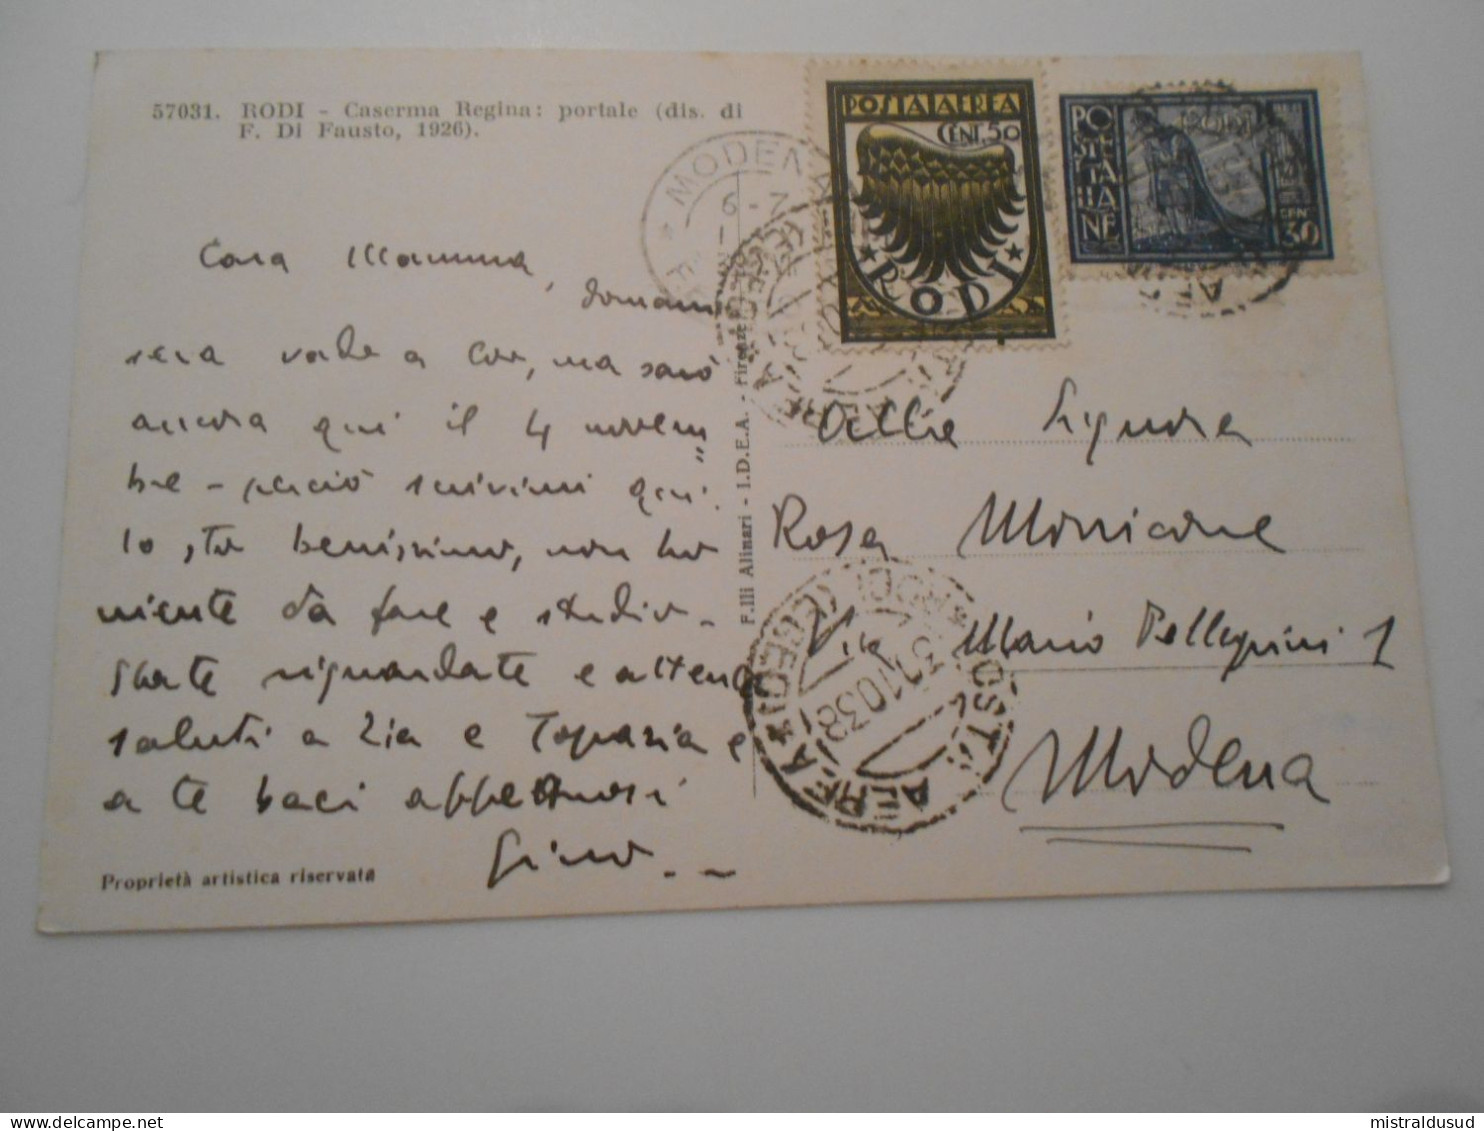 57031. RODI - Caserma Regina: portale (dis. di
F. Di Fausto, 1926).
POSTA AEREA
CENT. 50
RODI
POSTE ITALIANE
RODI
CEN 30
MODENA
Cara Mamma,
domani
sera vado a Coo, ma sarò
ancora qui il 4 novem
bre - perciò scrivimi qui.
Io sto benissimo, non ho
niente da fare e studio -
State riguardate e
saluti a Zia e Topazia e
a te baci affettuosi
Gino
Alla Signora
Rosa
Via Mario Pellegrini 1
Modena
POSTA AEREA
RODI (EGEO)
31.10.38
F.lli Alinari - I.D.E.A. - Firenze
Proprietà artistica riservata
mistraldusud